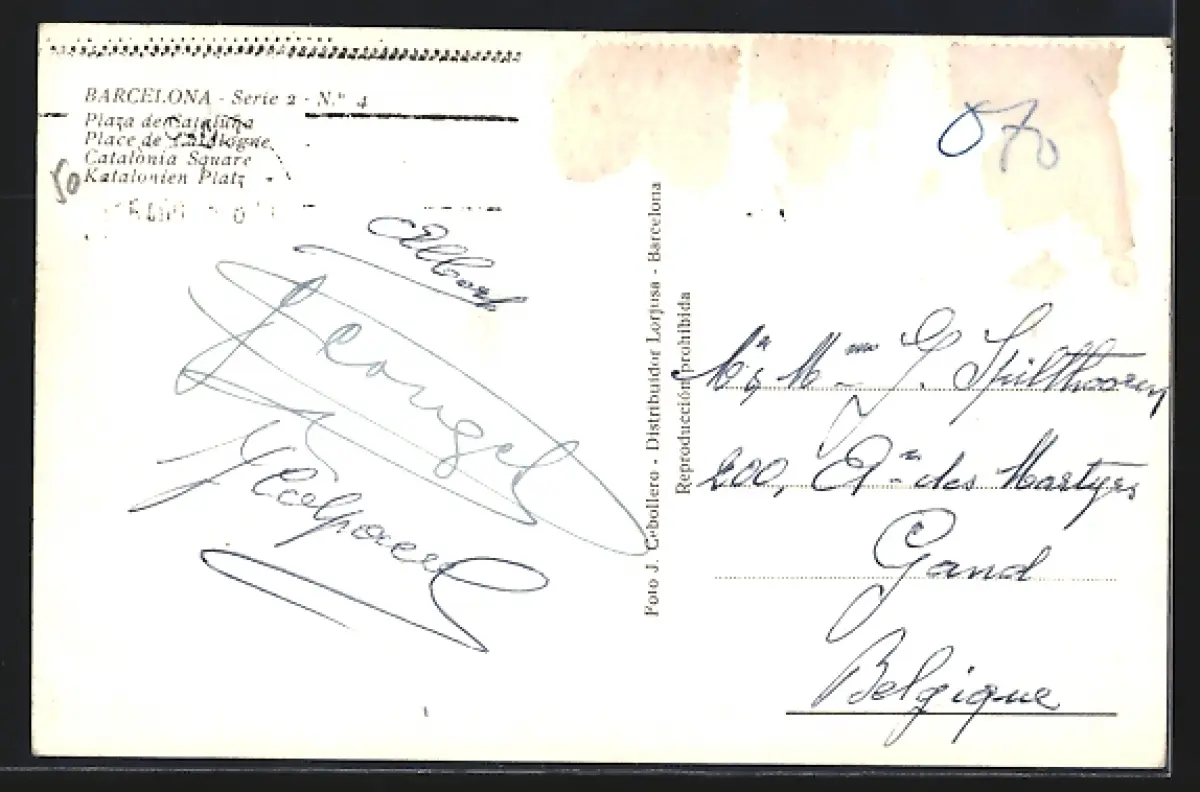 BARCELONA - Serie 2 - N.º 4
Plaza de Cataluña
Place de Catalogne
Catalonia Square
Katalonien Platz
50
Albert
Foto J. Cebollero - Distribuidor Lorjusa - Barcelona
Reproducción prohibida
070
Mr & Mme G. Spilthooren
200, Ae des Martyrs
Gand
Belgique